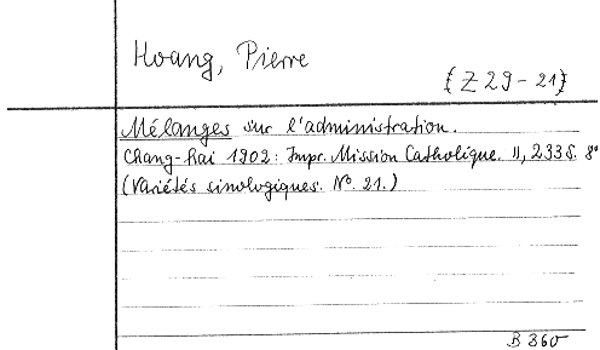 Hoang, Pierre
(Z 29-21)
Mélanges sur l'administration.
Chang-hai 1902: Impr. Mission Catholique. II, 233 S. 8°
(Variétés sinologiques. No. 21.)
B 360